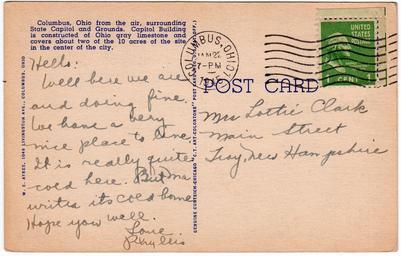 Columbus, Ohio from the air, surrounding
State Capitol and Grounds. Capitol Building
is constructed of Ohio gray limestone and
covers about two of the 10 acres of the site
in the center of the city.
Hello:
Well here we are
and doing fine.
We have a very
nice place to live
It is really quite
cold here. But Ma
writes its cold home
Hope you well.
Love
Phyllis
COLUMBUS, OHIO
JAN 22
7-PM
UNITED
STATES
POSTAGE
1 CENT 1
POST CARD
Mrs Lottie Clark
Main Street
Troy, New Hampshire